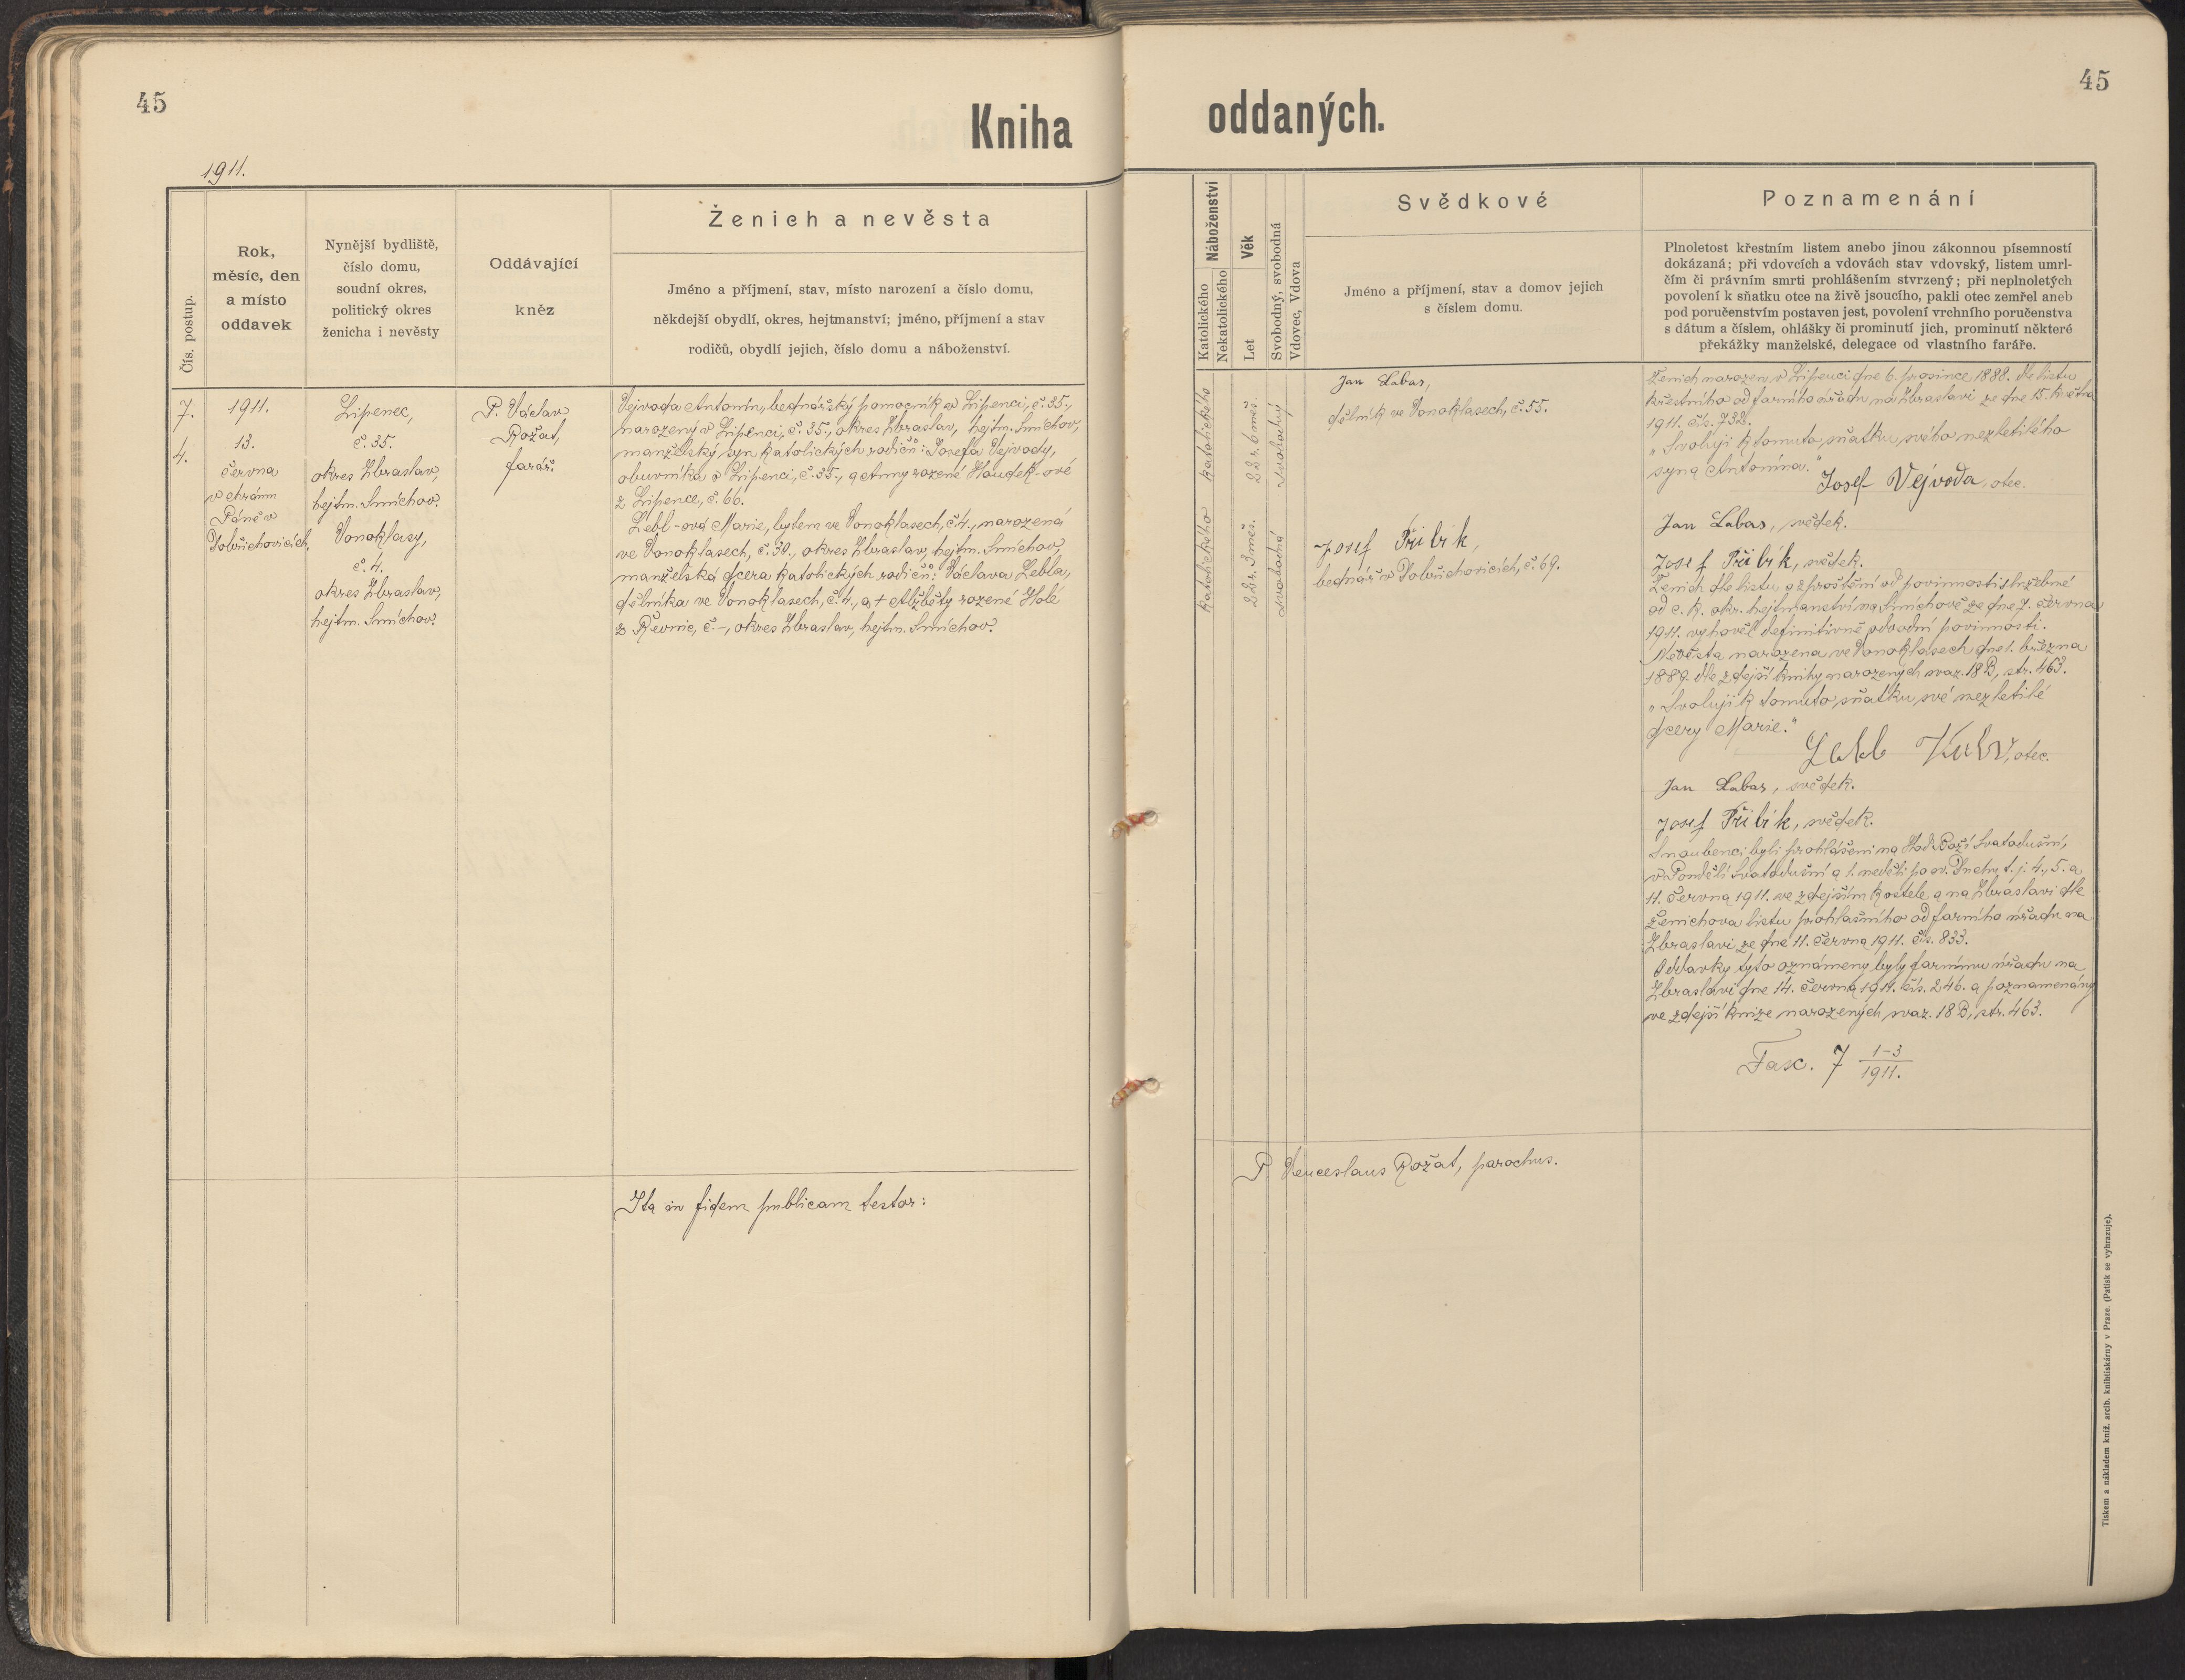 45
Kniha
1911.
Čís. postup.
Rok,
měsíc, den
a místo
oddavek
Nynější bydliště,
číslo domu,
soudní okres,
politický okres
ženicha i nevěsty
Oddávající
kněz
Ženich a nevěsta
Jméno a příjmení, stav, místo narození a číslo domu,
někdejší obydlí, okres, hejtmanství; jméno, příjmení a stav
rodičů, obydlí jejich, číslo domu a náboženství.
7.
4.
1911.
13.
června
v chrámu
Páně v
Dobřichovicích.
Lipenec,
č. 35.
okres Zbraslav,
hejtm. Smíchov.
Vonoklasy,
č. 4.
okres Zbraslav,
hejtm. Smíchov.
P. Václav
Rožat,
farář.
Vejvoda Antonín, bednářský pomocník v Lipenci, č. 35.,
narozený v Lipenci, č. 35., okres Zbraslav, hejtm. Smíchov,
manželský syn katolických rodičů: Josefa Vejvody,
obuvníka v Lipenci, č. 35., a Anny rozené Houdek-ové
z Lipence, č. 66.
Lebl-ová Marie, bytem ve Vonoklasech, č. 4., narozená
ve Vonoklasech, č. 30., okres Zbraslav, hejtm. Smíchov,
manželská dcera katolických rodičů: Václava Lebla,
dělníka ve Vonoklasech, č. 4., a + Alžběty rozené Holé
z Řevnic, č. –, okres Zbraslav, hejtm. Smíchov.
Ita in fidem publicam testor:
45
oddaných.
Náboženství
Katolického
Nekatolického
Věk
Let
Svobodný, svobodná
Vdovec, Vdova
Svědkové
Jméno a příjmení, stav a domov jejich
s číslem domu.
Poznamenání
Plnoletost křestním listem anebo jinou zákonnou písemností
dokázaná; při vdovcích a vdovách stav vdovský, listem umrl-
čím či právním smrti prohlášením stvrzený; při neplnoletých
povolení k sňatku otce na živě jsoucího, pakli otec zemřel aneb
pod poručenstvím postaven jest, povolení vrchního poručenstva
s dátum a číslem, ohlášky či prominutí jich, prominutí některé
překážky manželské, delegace od vlastního faráře.
katolického
22 r. 6 měs.
svobodný
katolického
22 r. 3 měs.
svobodná
Jan Labas,
dělník ve Vonoklasech, č. 55.
Josef Přibík,
bednář v Dobřichovicích, č. 69.
Ženich narozen v Lipenci dne 6. prosince 1888. dle listu
křestního od farního úřadu na Zbraslavi ze dne 15. května
1911. čís. 732.
„Svoluji k tomuto sňatku svého nezletilého
syna Antonína."
Josef Vejvoda, otec.
Jan Labas, svědek.
Josef Přibík, svědek.
Ženich dle listu o zproštění od povinnosti služebné
od c. k. okr. hejtmanství na Smíchově ze dne 7. června
1911. vyhověl definitivně odvodní povinnosti.
Nevěsta narozena ve Vonoklasech dne 1. března
1889. dle zdejší knihy narozených svaz. 18 B, str. 463.
„Svoluji k tomuto sňatku své nezletilé
dcery Marie."
Lebl, otec.
Jan Labas, svědek.
Josef Přibík, svědek.
Snoubenci byli prohlášeni na Hod Boží Svatodušní,
v Pondělí Svatodušní a 1. neděli po sv. Duchu t. j. 4., 5. a
11. června 1911. ve zdejším kostele a na Zbraslavi dle
ženichova listu prohlašního od farního úřadu na
Zbraslavi ze dne 11. června 1911. čís. 833.
Oddavky tyto oznámeny byly farnímu úřadu na
Zbraslavi dne 14. června 1911. čís. 246. a poznamenány
ve zdejší knize narozených svaz. 18 B, str. 463.
Fasc. 7 1–3
1911.
P. Venceslaus Rožat, parochus.
Tiskem a nákladem kníž. arcib. knihtiskárny v Praze. (Patisk se vyhrazuje).